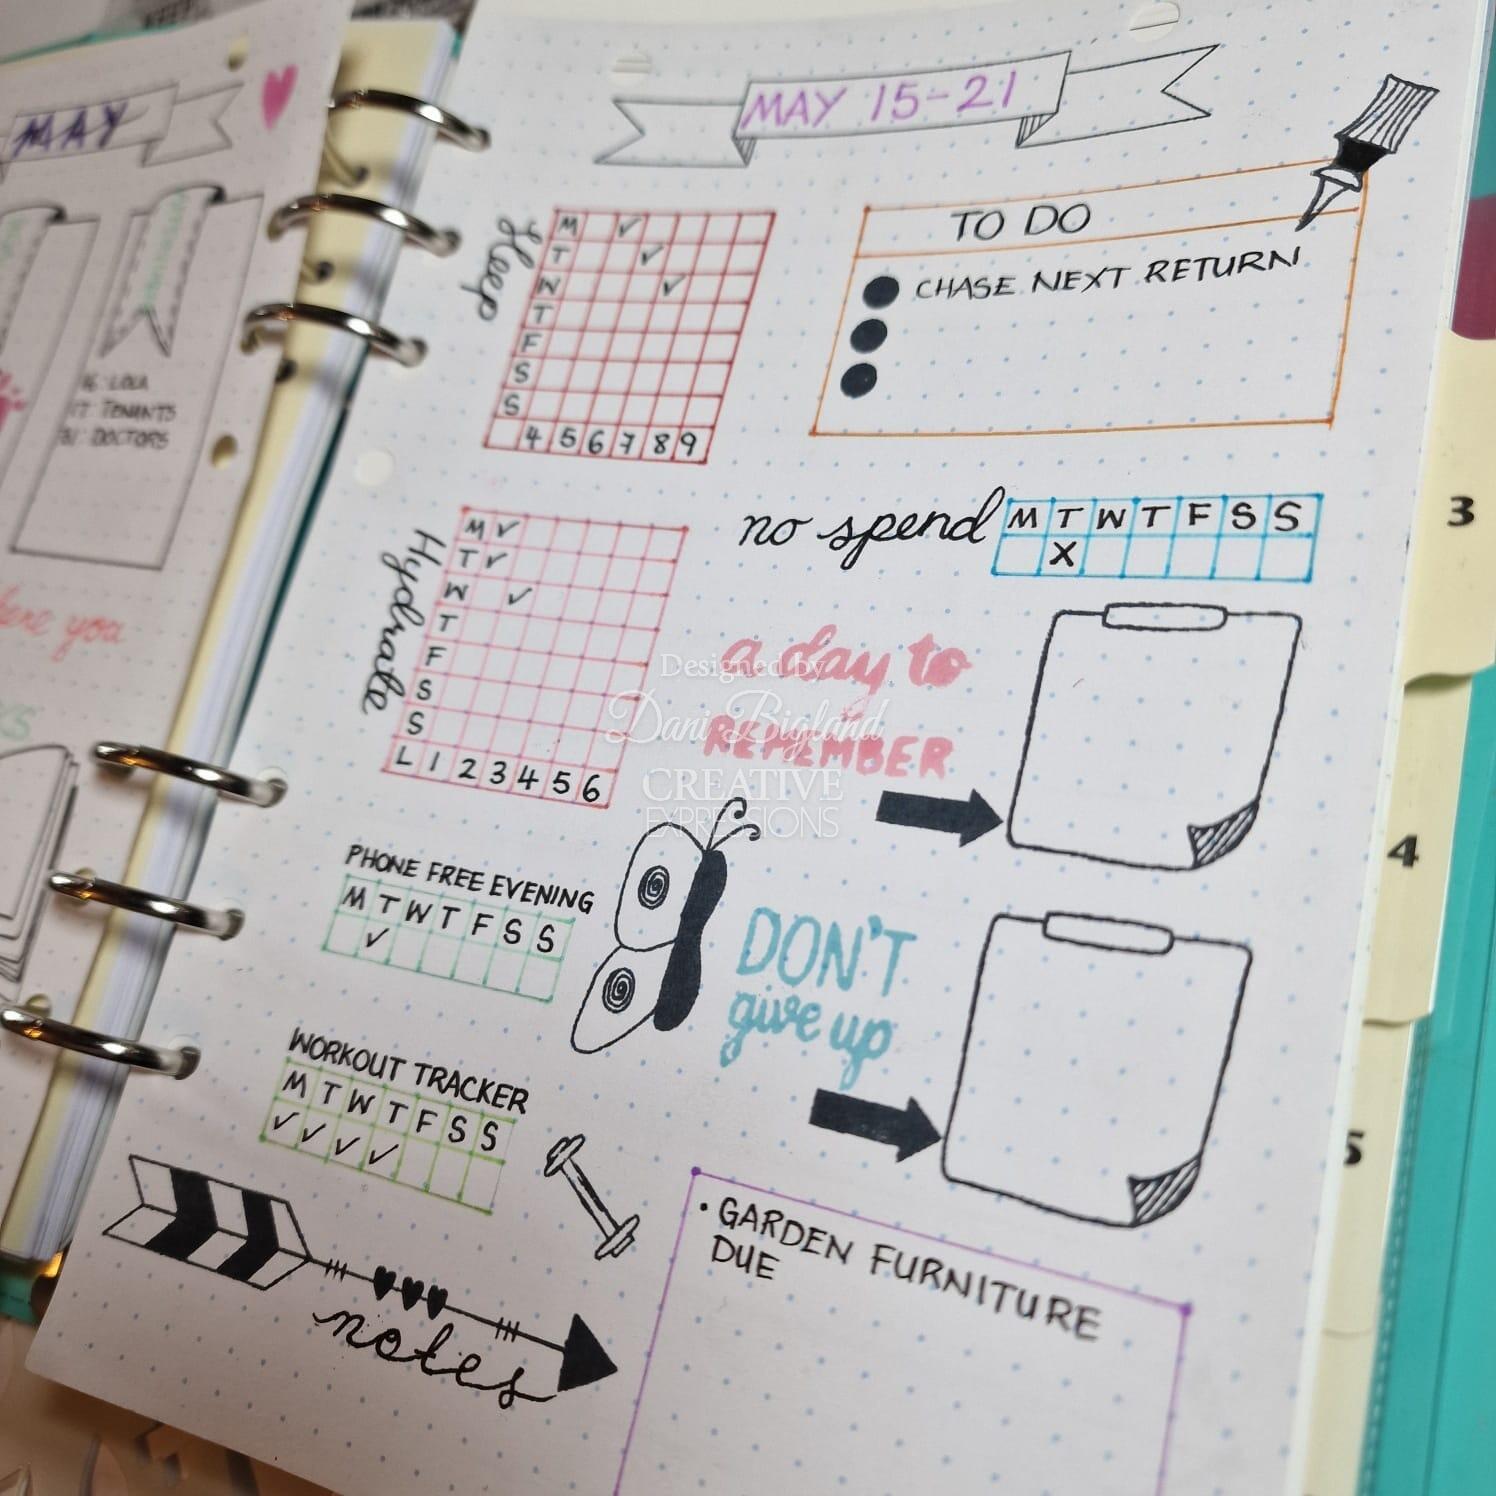 MAY
16: LOLA
17: TENANTS
31: DOCTORS
here you
MAY 15-21
Sleep
M ✓
T ✓
W ✓
T
F
S
S
4 5 6 7 8 9
TO DO
CHASE NEXT RETURN
Hydrate
M ✓
T ✓
W ✓
T
F
S
S
L 1 2 3 4 5 6
no spend
M T W T F S S
X
a day to
REMEMBER
Designed by
Dani Bigland
CREATIVE
EXPRESSIONS
PHONE FREE EVENING
M T W T F S S
✓
DON'T
give up
WORKOUT TRACKER
M T W T F S S
✓ ✓ ✓ ✓
notes
• GARDEN FURNITURE
DUE
3
4
5